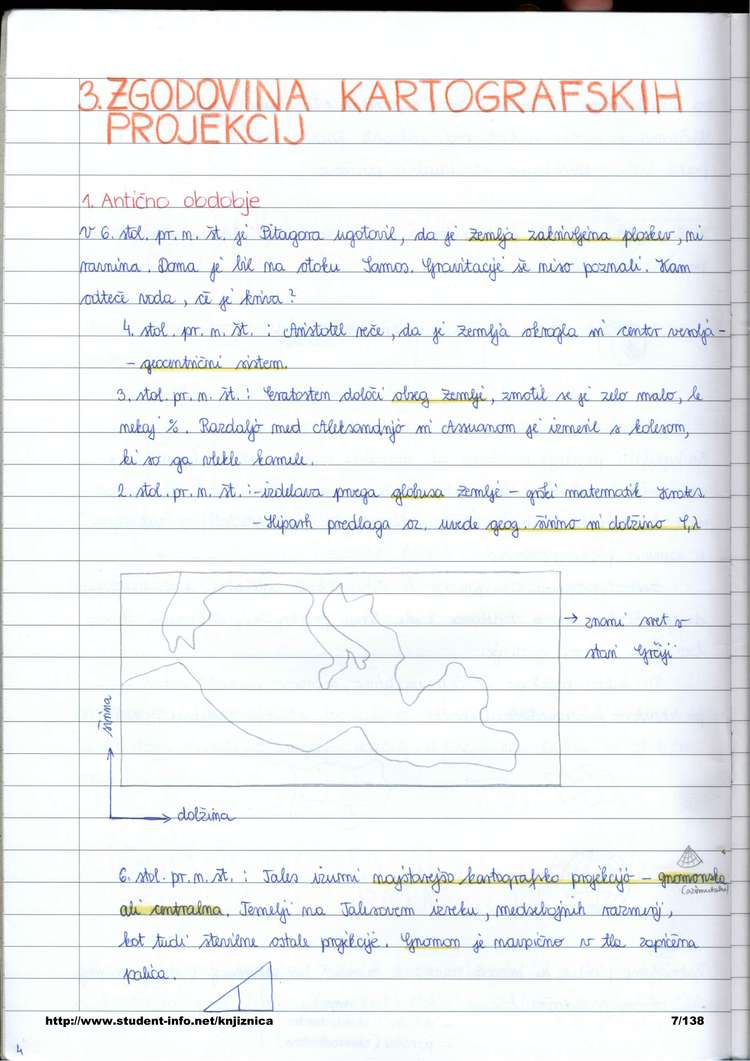 3. ZGODOVINA KARTOGRAFSKIH
PROJEKCIJ
1. Antično obdobje
V 6. stol. pr. n. št. je Pitagora ugotovil, da je Zemlja zakrivljena ploskev, ni
ravnina. Doma je bil na otoku Samos. Gravitacije še niso poznali. Kam
odteče voda, če je kriva?
4. stol. pr. n. št. : Aristotel reče, da je Zemlja okrogla in center vesolja -
- geocentrični sistem.
3. stol. pr. n. št. : Eratosten določi obseg Zemlje, zmotil se je zelo malo, le
nekaj %. Razdaljo med Aleksandrijo in Assuanom je izmeril s kolesom,
ki so ga vlekle kamele.
2. stol. pr. n. št. : - izdelava prvega globusa Zemlje - grški matematik Krates.
- Hiparh predlaga oz. uvede geog. širino in dolžino φ, λ
→ znani svet v
stari Grčiji
širina
dolžina
6. stol. pr. n. št. : Tales izumi najstarejšo kartografsko projekcijo - gnomonsko
(azimutalno)
ali centralna. Temelji na Talesovem izreku, medsebojnih razmerij,
kot tudi številne ostale projekcije. Gnomon je navpično v tla zapičena
palica.
http://www.student-info.net/knjiznica 7/138
4